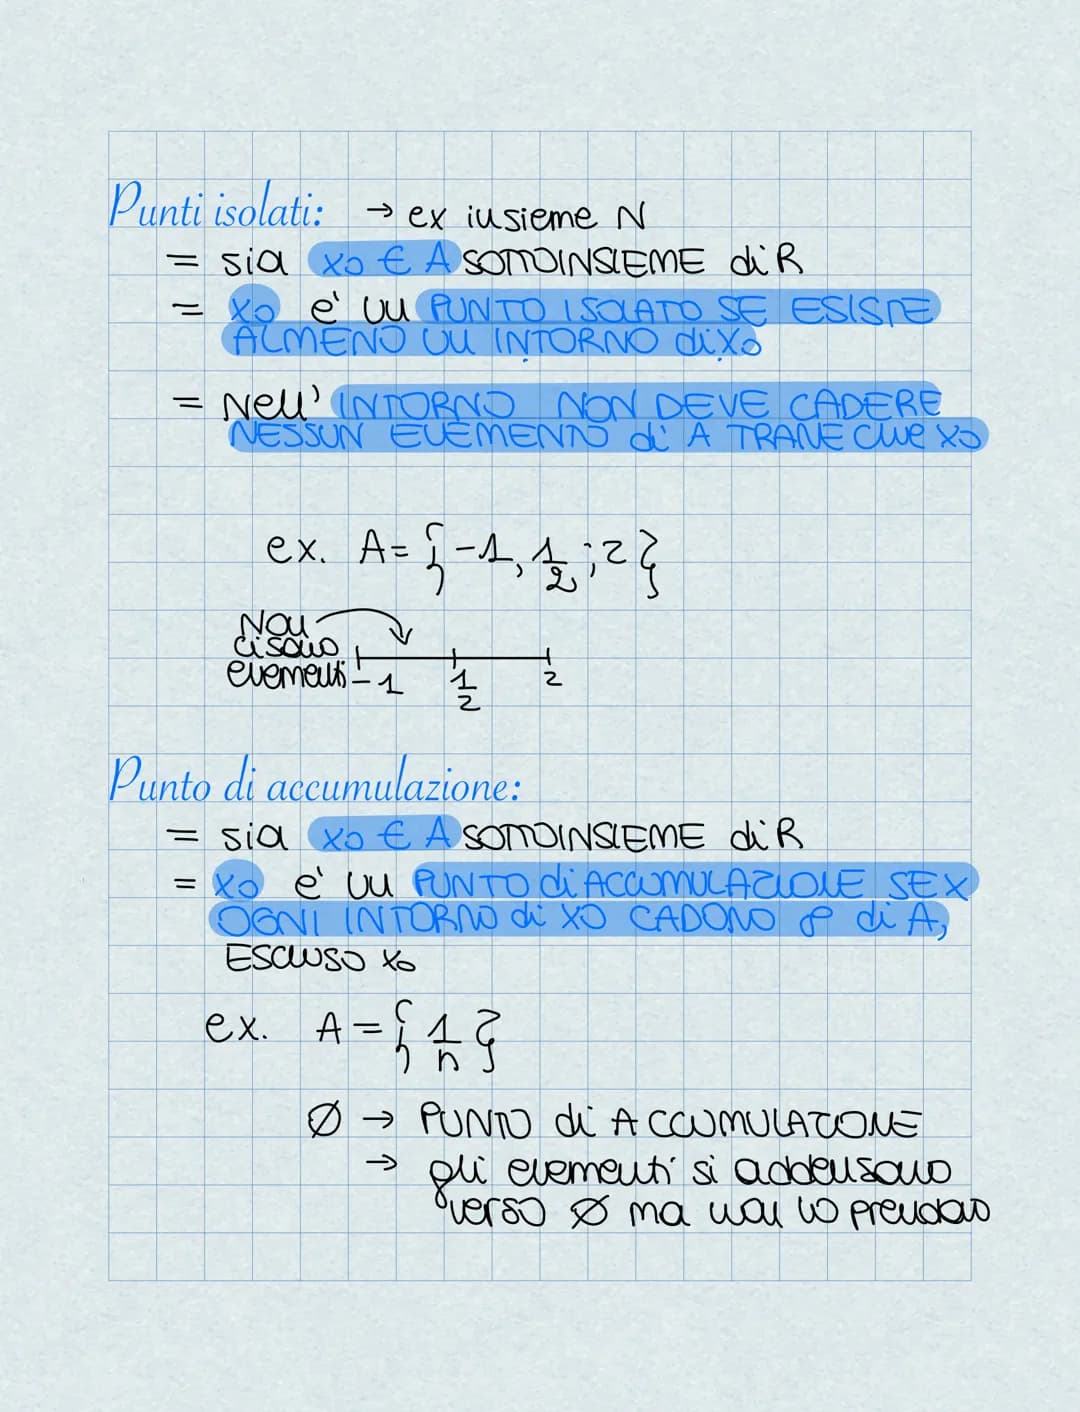 Punti isolati: → ex insieme N
= sia x₀ ∈ A SOTTOINSIEME di R
= x₀ e' un PUNTO ISOLATO SE ESISTE
ALMENO UN INTORNO di x₀
= Nell' INTORNO NON DEVE CADERE
NESSUN ELEMENTO di A TRANNE che x₀
ex. A = { -1, 1/2 ; 2 }
Non
ci sono
elementi
-1 1/2 2
Punto di accumulazione:
= sia x₀ ∈ A SOTTOINSIEME di R
= x₀ e' un PUNTO di ACCUMULAZIOLE SE X
OGNI INTORNO di x₀ CADONO ∞ di A,
ESCLUSO x₀
ex. A = { 1/n }
Ø → PUNTO di ACCUMULAZIONE
→ gli elementi si addensano
verso Ø ma non lo prendono